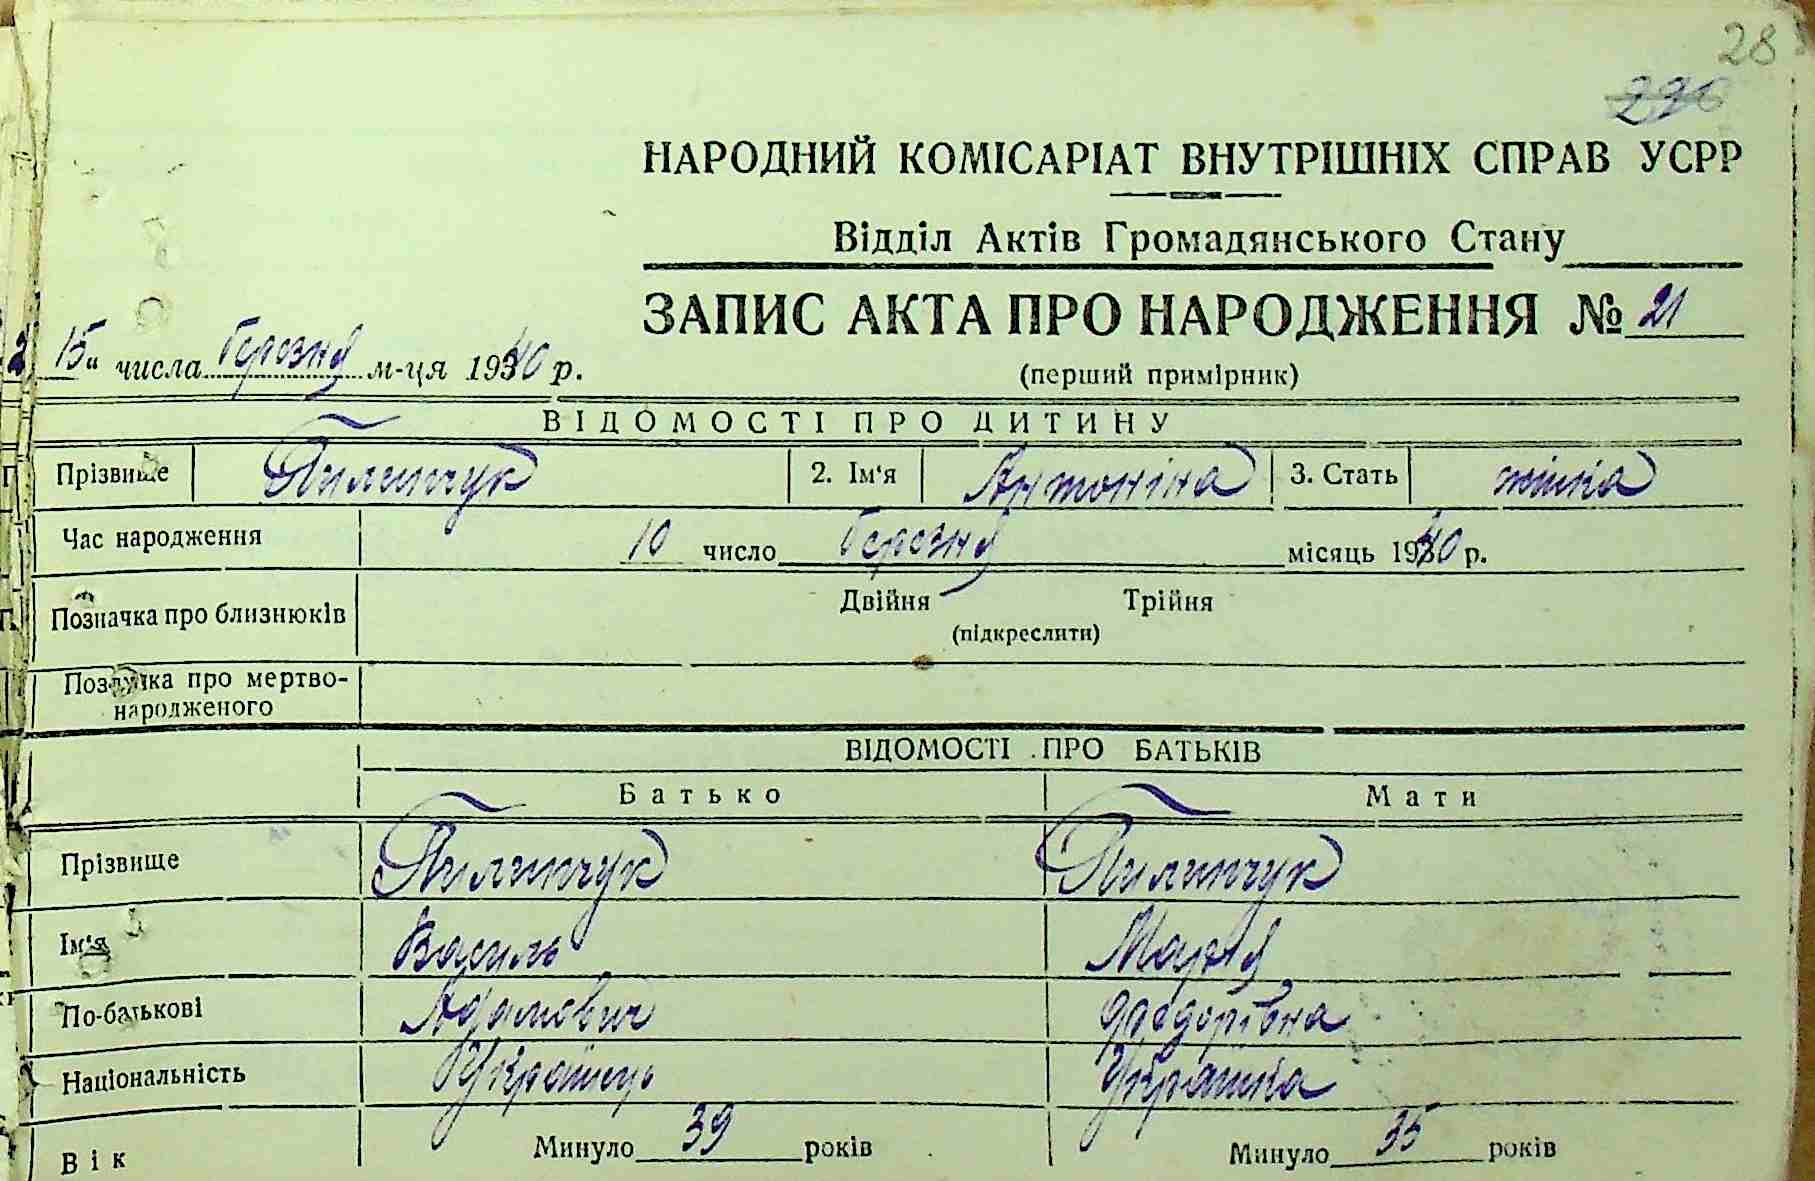 28
226
НАРОДНИЙ КОМІСАРІАТ ВНУТРІШНІХ СПРАВ УСРР
Відділ Актів Громадянського Стану
ЗАПИС АКТА ПРО НАРОДЖЕННЯ № 21
15" числа березня м-ця 1940 р.
(перший примірник)
ВІДОМОСТІ ПРО ДИТИНУ
Прізвище Пилипчук 2. Ім'я Антоніна 3. Стать жінка
Час народження 10 число березня місяць 1940 р.
Позначка про близнюків Двійня Трійня
(підкреслити)
Позначка про мертво-
народженого
ВІДОМОСТІ ПРО БАТЬКІВ
Батько Мати
Прізвище Пилипчук Пилипчук
Ім'я Василь Марія
По-батькові Адамович Федорівна
Національність Українець Українка
Вік Минуло 39 років Минуло 35 років